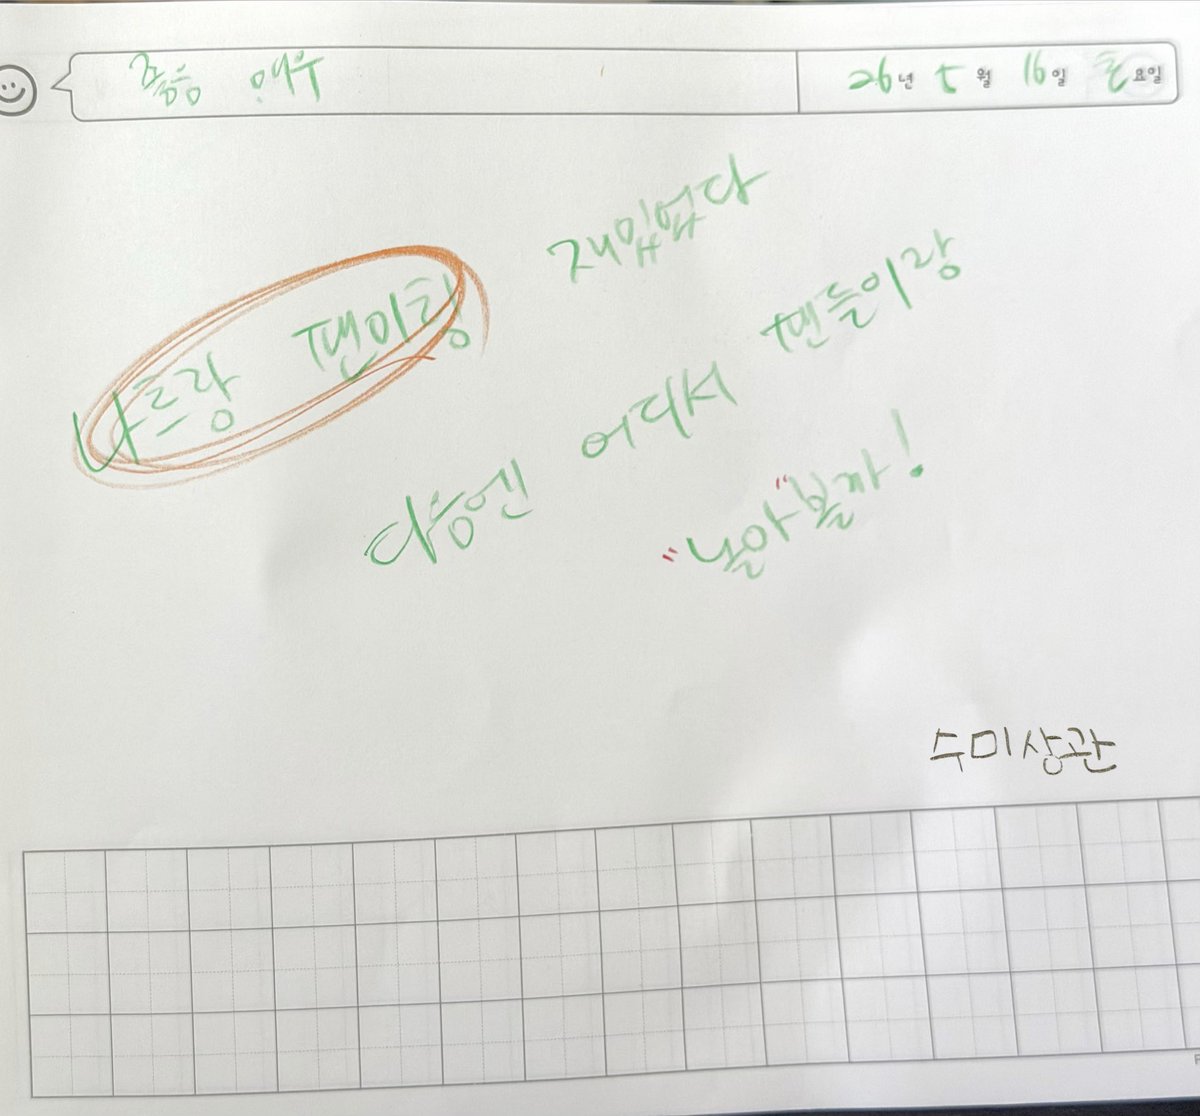 26년 5월 16일 토요일
나르랑 팬이랑 재밌었다
다음엔 어디서 팬들이랑
"놀아"볼까!
수미상관